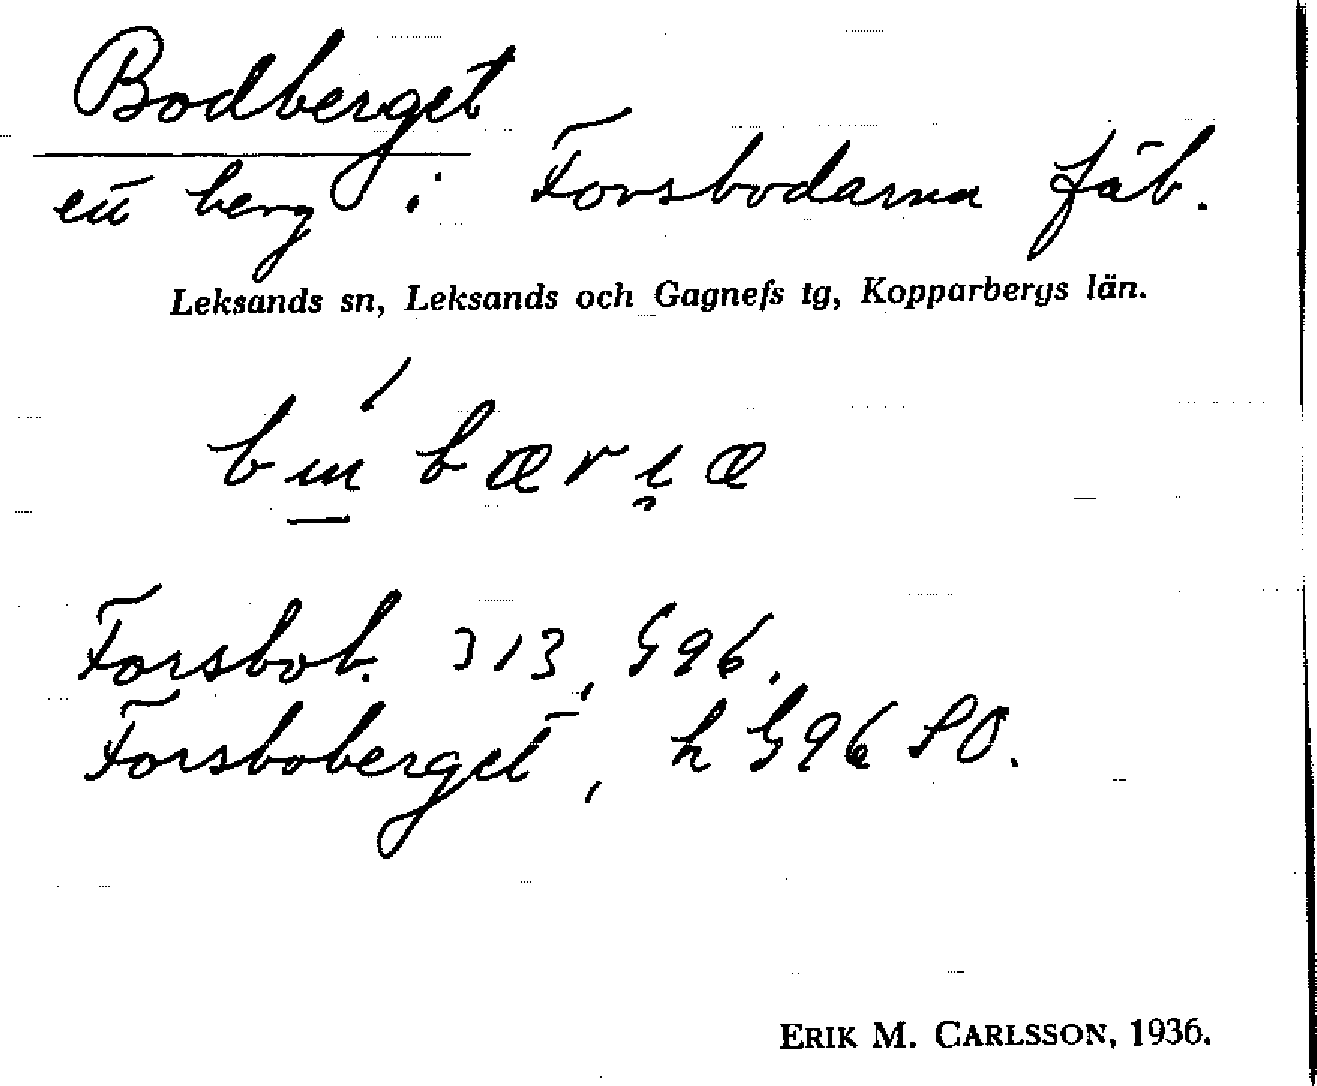 Bodberget
ett berg i Forsbodarna fäb.
Leksands sn, Leksands och Gagnefs tg, Kopparbergs län.
Forsbob. 313, G96.
Forsboberget, h G96 SO.
ERIK M. CARLSSON, 1936.